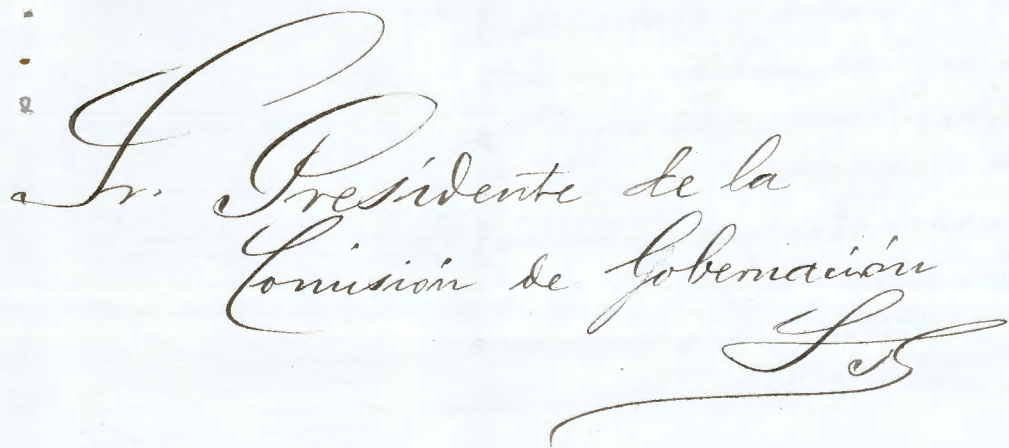 Sr. Presidente de la
Comisión de Gobernación